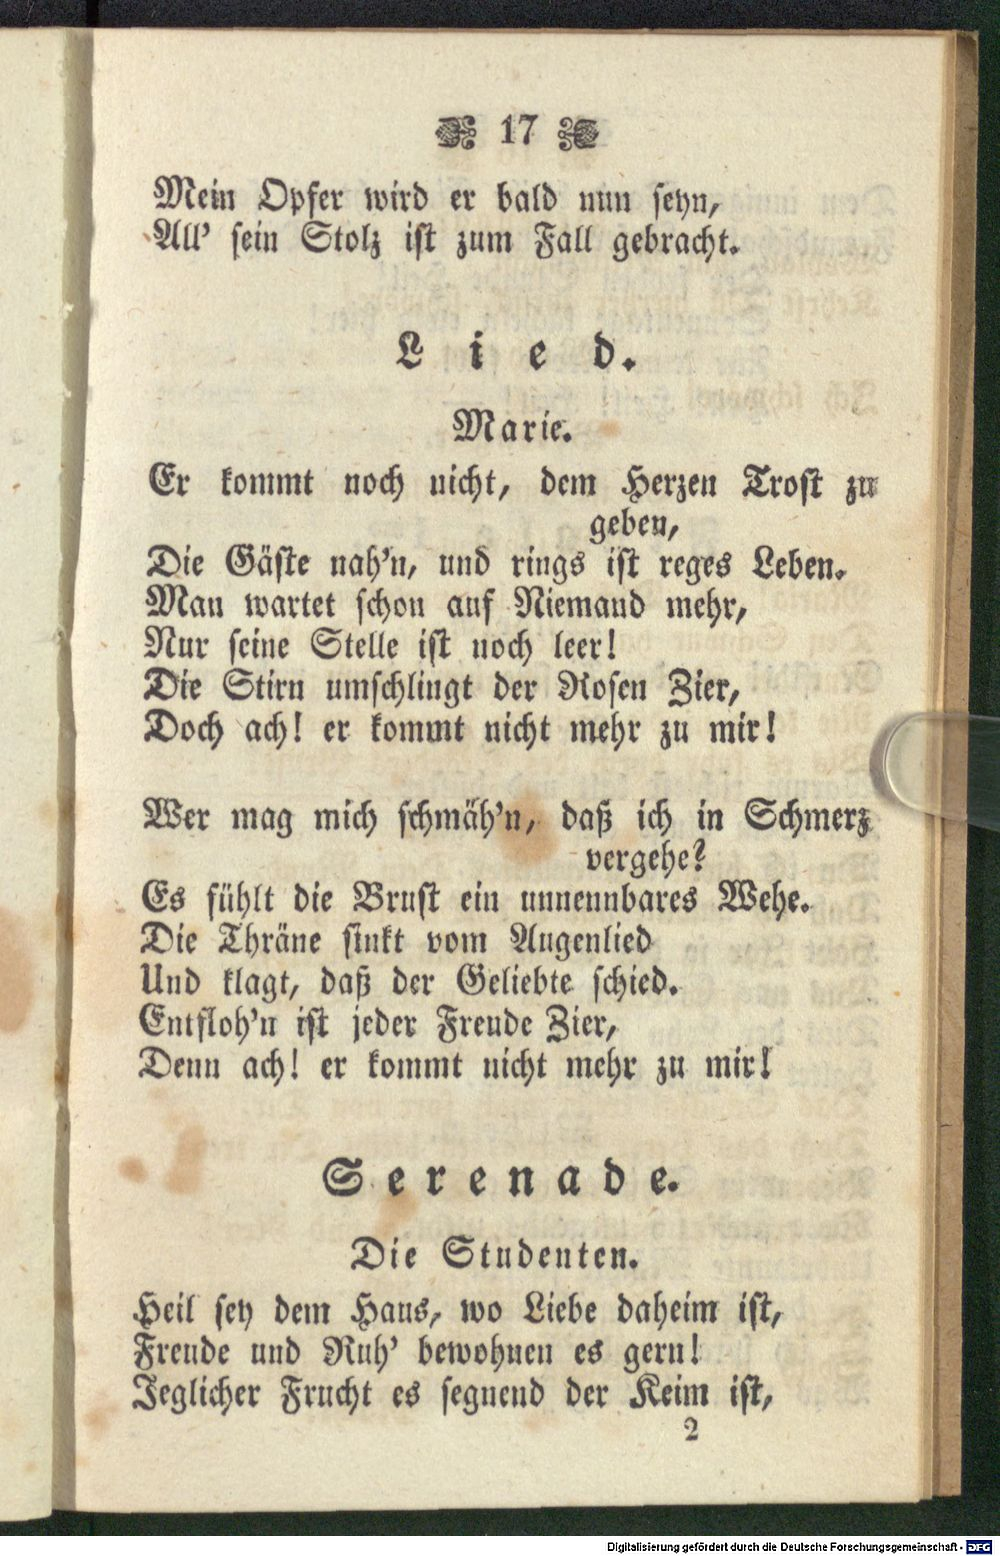 17
Mein Opfer wird er bald nun seyn,
All' sein Stolz ist zum Fall gebracht.
Lied.
Marie.
Er kommt noch nicht, dem Herzen Trost zu
geben,
Die Gäste nah'n, und rings ist reges Leben.
Man wartet schon auf Niemand mehr,
Nur seine Stelle ist noch leer!
Die Stirn umschlingt der Rosen Zier,
Doch ach! er kommt nicht mehr zu mir!
Wer mag mich schmäh'n, daß ich in Schmerz
vergehe?
Es fühlt die Brust ein unnennbares Wehe.
Die Thräne sinkt vom Augenlied
Und klagt, daß der Geliebte schied.
Entfloh'n ist jeder Freude Zier,
Denn ach! er kommt nicht mehr zu mir!
Serenade.
Die Studenten.
Heil sey dem Haus, wo Liebe daheim ist,
Freude und Ruh' bewohnen es gern!
Jeglicher Frucht es segnend der Keim ist,
2
Digitalisierung gefördert durch die Deutsche Forschungsgemeinschaft - DFG